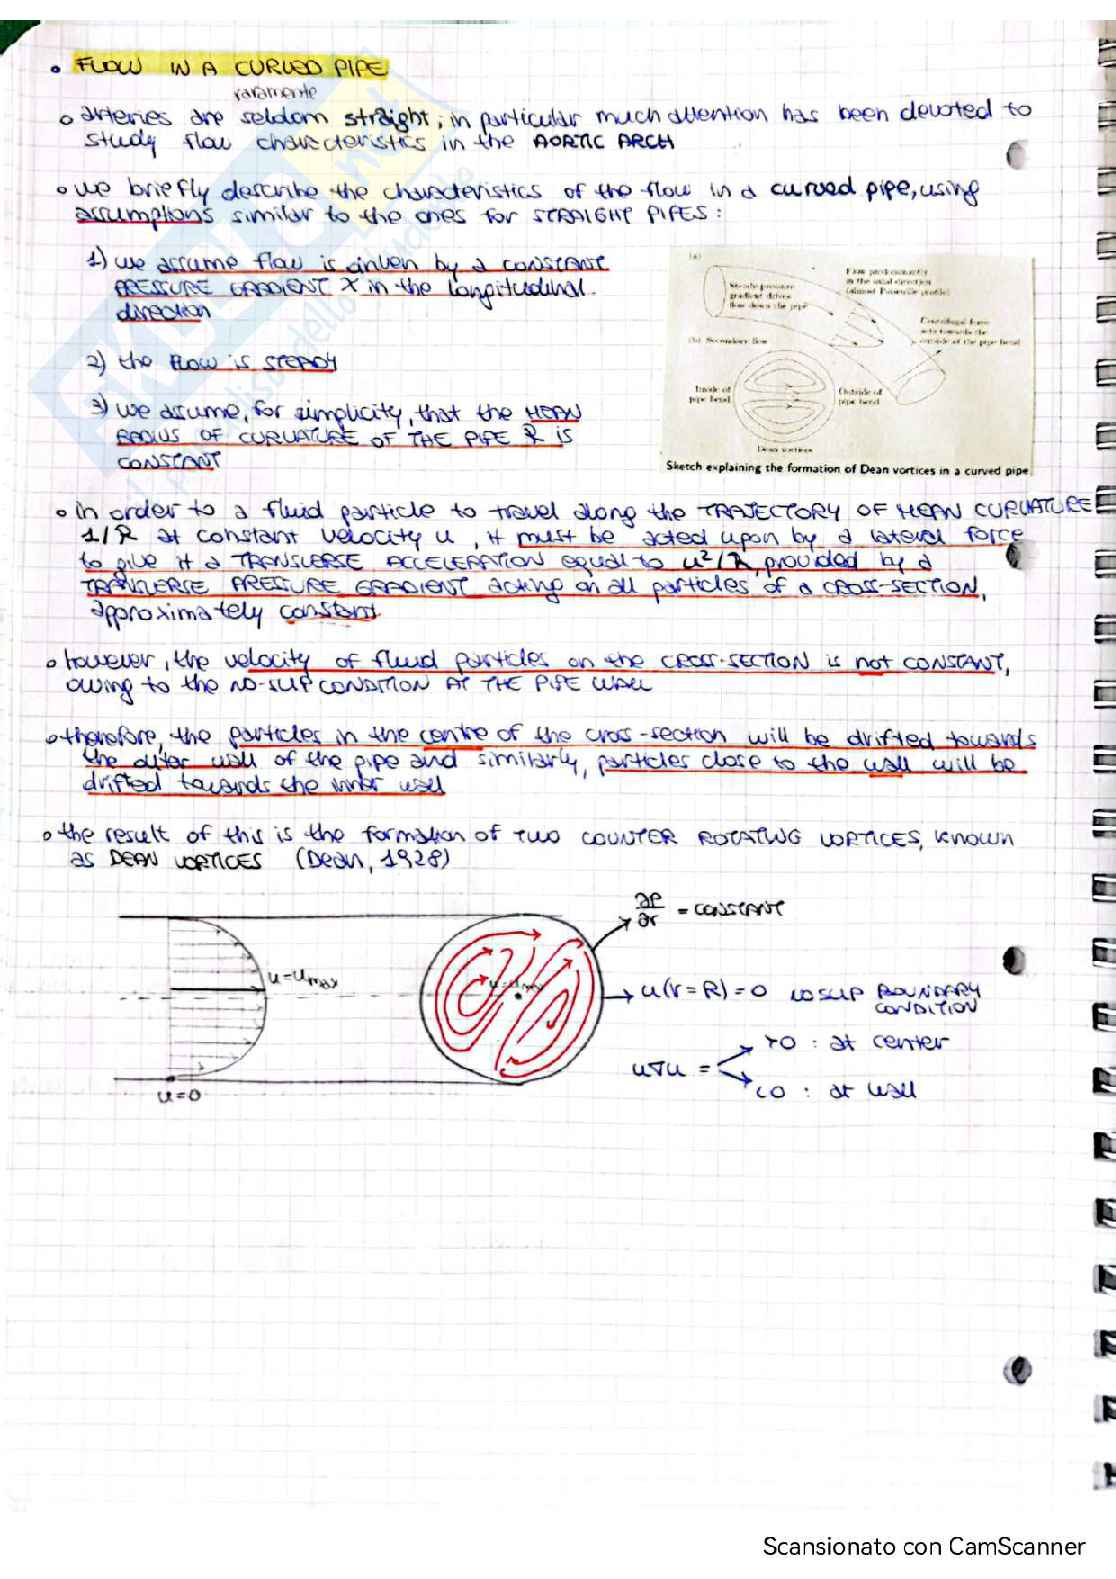 • FLOW IN A CURVED PIPE
raramente
o arteries are seldom straight, in particular much attention has been devoted to
study flow characteristics in the AORTIC ARCH
o we briefly describe the characteristics of the flow in a curved pipe, using
assumptions similar to the ones for STRAIGHT PIPES:
1) we assume flow is driven by a CONSTANT
PRESSURE GRADIENT X in the longitudinal
direction
2) the FLOW IS STEADY
3) we assume, for simplicity, that the MEAN
RADIUS OF CURVATURE OF THE PIPE R IS
CONSTANT
(a)
Steady pressure
gradient drives
flow down the pipe
Flow predominantly
in the axial direction
(almost Poiseuille profile)
Centrifugal force
acts towards the
outside of the pipe bend
(b) Secondary flow
Inside of
pipe bend
Outside of
pipe bend
Dean vortices
Sketch explaining the formation of Dean vortices in a curved pipe
o in order to a fluid particle to travel along the TRAJECTORY OF MEAN CURVATURE
1/R at constant velocity u, it must be acted upon by a lateral force
to give it a TRANSVERSE ACCELERATION equal to u²/R, provided by a
TRANSVERSE PRESSURE GRADIENT acting on all particles of a CROSS-SECTION,
approximately constant
o however, the velocity of fluid particles on the CROSS-SECTION is not CONSTANT,
owing to the NO-SLIP CONDITION AT THE PIPE WALL
o therefore, the particles in the centre of the cross-section will be drifted towards
the outer wall of the pipe and similarly, particles close to the wall will be
drifted towards the inner wall
o the result of this is the formation of TWO COUNTER ROTATING VORTICES, known
as DEAN VORTICES (Dean, 1928)
∂P/∂r = CONSTANT
u=u max
u(r=R)=0 NO SLIP BOUNDARY
CONDITION
u∇u = >0 : at center
<0 : at wall
u=0
Scansionato con CamScanner